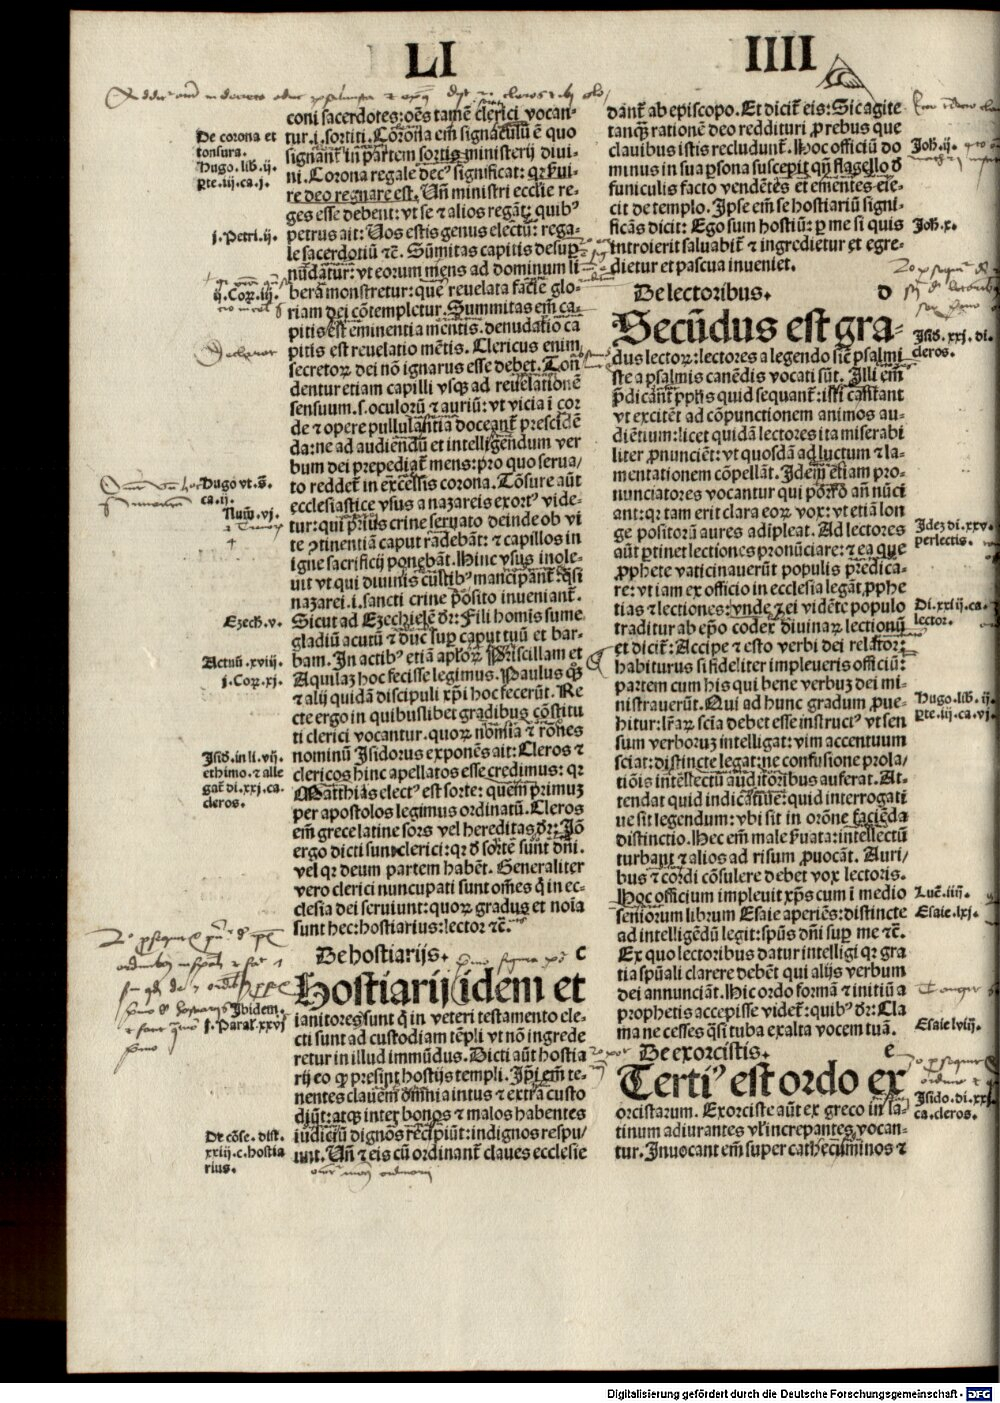 LI
IIII
coni sacerdotes: oēs tamē clerici vocan-
tur .i. sortiti. Corona em̄ signaculū ē quo
signant᷑ in partem sortis ministerij diui-
ni. Corona regale decꝰ significat: qꝛ ẜui-
re deo regnare est. Un̄ ministri ecclie re-
ges esse debent: vt se ⁊ alios regāt: quibꝰ
petrus ait: Uos estis genus electū: rega-
le sacerdotiū ⁊c̄. Sūmitas capitis desuꝑ
nūdatur: vt eorum mens ad dominum li
bera monstretur: que reuelata facie glo-
riam dei cōtempletur. Summitas em̄ ca-
pitis est eminentia mentis. denudatio ca
pitis est reuelatio mētis. Clericus enim
secretoꝝ dei nō ignarus esse debet. Ton̄
dentur etiam capilli vsqꝫ ad reuelationē
sensuum .s. oculorū ⁊ auriū: vt vicia ī cor
de ⁊ opere pullulantia doceant᷑ prescidē
da: ne ad audiendū et intelligendum ver
bum dei prepediat᷑ mens: pro quo serua/
to reddet᷑ in excelsis corona. Tōsure aūt
ecclesiastice vsus a nazareis exortꝰ vide-
tur: qui prius crine seruato deinde ob vi
te ꝯtinentiā caput radebāt: ⁊ capillos in
igne sacrificij ponebāt. Hinc vsus inole-
uit vt qui diuinis cultibꝰ mancipant᷑: q̄si
nazarei .i. sancti crine p̄osito inueniant᷑.
Sicut ad Ezechielē dr̄: Fili homis sume
gladiū acutū ⁊ duc suꝑ caput tuū et bar-
bam. In actibꝰ etiā aplōꝝ Priscillam et
Aquilaꝫ hoc fecisse legimus. Paulus qꝫ
⁊ alij quidā discipuli xp̄i hoc fecerūt. Re
cte ergo in quibuslibet gradibus cōstitu
ti clerici vocantur. quoꝝ nomīa ⁊ rōnes
nominū Isidorus exponēs ait: Cleros ⁊
clericos hinc apellatos esse credimus: qꝛ
Matthias electꝰ est sorte: quem primuꝫ
per apostolos legimus ordinatū. Cleros
em̄ grece latine sors vel hereditas dr̄: Iō
ergo dicti sunt clerici: qꝛ d̄ sorte sunt dn̄i.
vel qꝛ deum partem habēt. Generaliter
vero clerici nuncupati sunt om̄es q̄ in ec-
clesia dei seruiunt: quoꝝ gradus et noīa
sunt hec: hostiarius: lector ⁊c̄.
De hostiarijs. c
Hostiarij idem et
ianitores sunt q̄ in veteri testamento ele-
cti sunt ad custodiam tēpli vt nō ingrede
retur in illud immūdus. Dicti aūt hostia
rij eo ꝙ presint hostijs templi. Ip̄i em̄ te-
nentes clauem omnia intus ⁊ extra custo
diūt: atqꝫ inter bonos ⁊ malos habentes
iudiciū dignos recipiūt: indignos respu/
unt. Un̄ ⁊ eis cū ordinant᷑ claues ecclesie
De corona et
tonsura.
Hugo. lib. ij.
p̄te. iij. ca. j.
j. Petri. ij.
ij. Coꝝ. iij.
Hugo vt. s̄.
ca. ij.
Num̄. vj.
Ezech. v.
Actuū. xviij.
j. Coꝝ. xj.
Isid̄. in li. vij.
ethimo. ⁊ alle
gat᷑ di. xxj. ca.
cleros.
Ibidem.
j. Paral. xxvj
De cōse. dist.
xxiij. c. hostia
rius.
dant᷑ ab episcopo. Et dicit᷑ eis: Sic agite
tanqꝫ rationē deo reddituri ꝓ rebus que
clauibus istis recludunt᷑. Hoc officiū do
minus in sua ꝑsona suscepit qn̄ flagello d̄
funiculis facto vendētes et ementes eie-
cit de templo. Ipse em̄ se hostiariū signi-
ficās dicit: Ego sum hostiū: ꝑ me si quis
introierit saluabit᷑ ⁊ ingredietur et egre-
dietur et pascua inueniet.
De lectoribus. D
Secūdus est gra-
dus lectoꝝ: lectores a legendo sic̄ psalmi
ste a psalmis canēdis vocati sūt. Illi em̄
p̄dicant᷑ pp̄lis quid sequant᷑: isti cantant
vt excitēt ad cōpunctionem animos au-
diētium: licet quidā lectores ita miserabi
liter ꝓnunciēt: vt quosdā ad luctum ⁊ la-
mentationem cōpellāt. Idem etiam pro-
nunciatores vocantur qui porro an̄ nūci
ant: qꝛ tam erit clara eoꝝ vox: vt etiā lon
ge positorū aures adipleat. Ad lectores
aūt ꝑtinet lectiones pronūciare: ⁊ ea que
ꝓphete vaticinauerūt populis predica-
re: vt iam ex officio in ecclesia legāt ꝓphe
tias ⁊ lectiones: vnde ⁊ ei vidēte populo
traditur ab ep̄o codex diuinaꝝ lectionū
et dicit᷑: Accipe ⁊ esto verbi dei relator:
habiturus si fideliter impleueris officiū:
partem cum his qui bene verbuꝫ dei mi-
nistrauerūt. Qui ad hunc gradum ꝓue-
hitur: lr̄aꝝ scīa debet esse instrucꝰ vt sen
sum verboruꝫ intelligat: vim accentuum
sciat: distincte legat: ne confusione prola/
tiōis intellectū auditoribus auferat. At-
tendat quid indicatiue: quid interrogati
ue sit legendum: vbi sit in orōne facieda
distinctio. Hec em̄ male ẜuata: intellectū
turbant ⁊ alios ad risum ꝓuocāt. Auri/
bus ⁊ cordi cōsulere debet vox lectoris.
Hoc officium impleuit xp̄s cum ī medio
seniorum librum Esaie aperiēs: distincte
ad intelligēdū legit: spūs dn̄i suꝑ me ⁊c̄.
Ex quo lectoribus datur intelligi qꝛ gra
tia spūali clarere debēt qui alijs verbum
dei annunciāt. Hic ordo formā ⁊ initiū a
prophetis accepisse videt᷑: quibꝰ dr̄: Cla
ma ne cesses q̄si tuba exalta vocem tuā.
De exorcistis. e
Tertiꝰ est ordo ex
orcistarum. Exorciste aūt ex greco in la-
tinum adiurantes vl̓ increpantes vocan-
tur. Inuocant em̄ super cathecuminos ⁊
Joh. ij.
Joh. x.
Isid̄. xxj. di.
cleros.
Ideꝫ di. xxv.
perlectis.
Di. xxiij. ca.
lector.
Hugo. lib. ij.
p̄te. iij. ca. vj.
Luc̄. iiij.
Esaie. lxj.
Esaie lviij.
Isido. di. xxj.
ca. cleros.
Digitalisierung gefördert durch die Deutsche Forschungsgemeinschaft - DFG